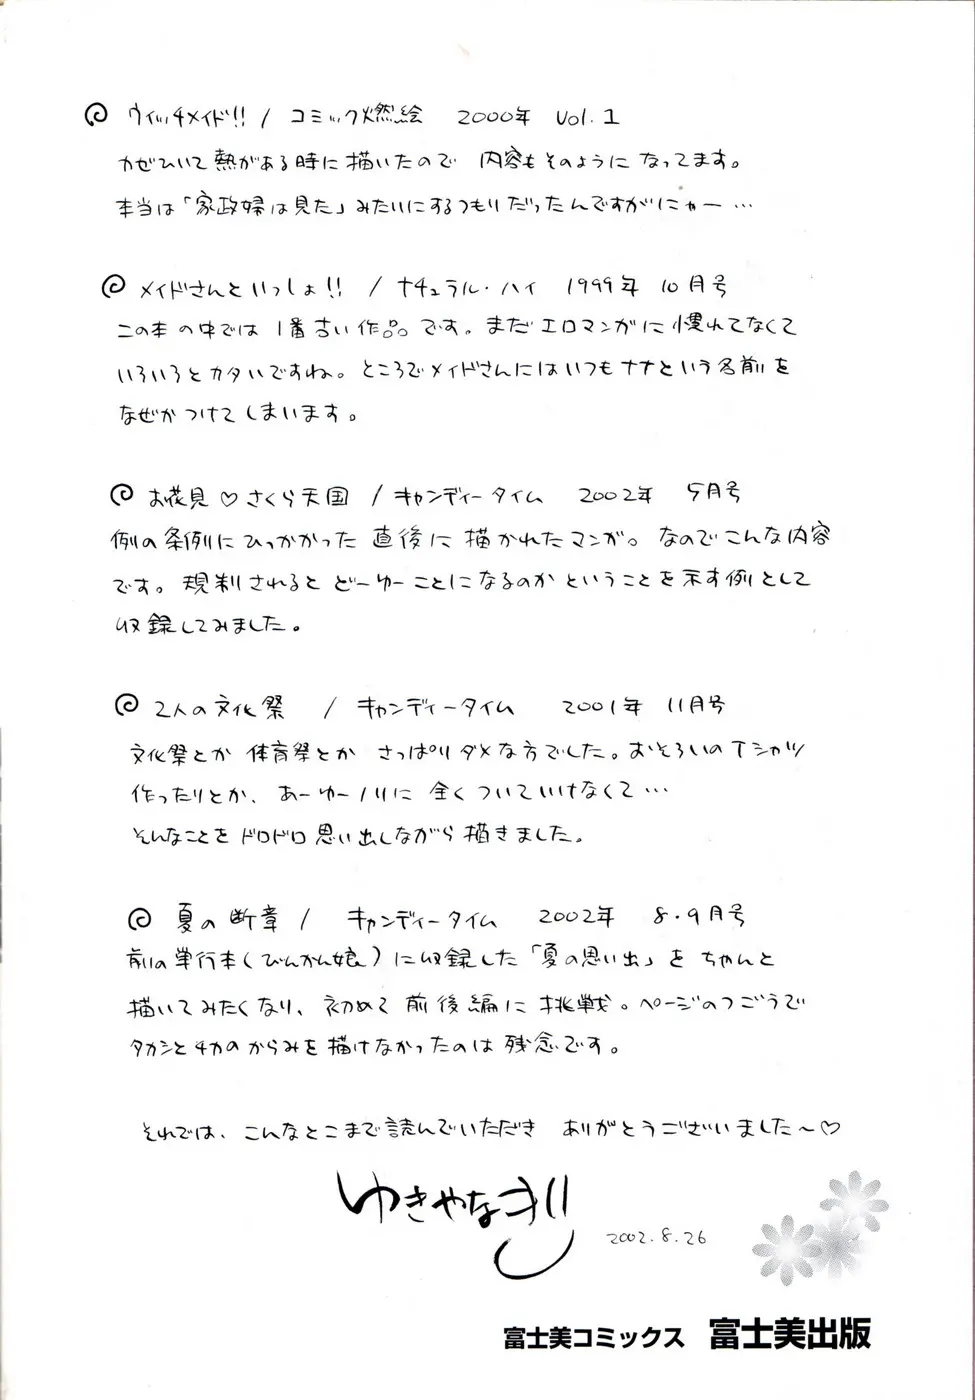 ウィッチメイド!! / コミック燃絵 2000年 Vol.1
カゼひいて熱がある時に描いたので 内容もそのようになってます。
本当は「家政婦は見た」みたいにするつもりだったんですがにゃー…
メイドさんといっしょ!! / ナチュラル・ハイ 1999年 10月号
この本の中では 1番古い作品です。まだエロマンガに慣れてなくて
いろいろとカタいですね。ところでメイドさんにはいつもナナという名前を
なぜかつけてしまいます。
お花見♡さくら天国 / キャンディータイム 2002年 5月号
例の条例にひっかかった直後に描かれたマンガ。なのでこんな内容
です。規制されるとどーゆーことになるのかということを示す例として
収録してみました。
2人の文化祭 / キャンディータイム 2001年 11月号
文化祭とか 体育祭とか さっぱりダメな方でした。おそろいのTシャツ
作ったりとか、あーゆーノリに 全くついていけなくて…
そんなことをドロドロ思い出しながら描きました。
夏の断章 / キャンディータイム 2002年 8・9月号
前の単行本(びんかん娘)に収録した「夏の思い出」をちゃんと
描いてみたくなり、初めて前後編に挑戦。ページのつごうで
タカシとチカのからみを描けなかったのは残念です。
それでは、こんなとこまで読んでいただき ありがとうございました〜♡
ゆきやなぎ
2002.8.26
富士美コミックス 富士美出版